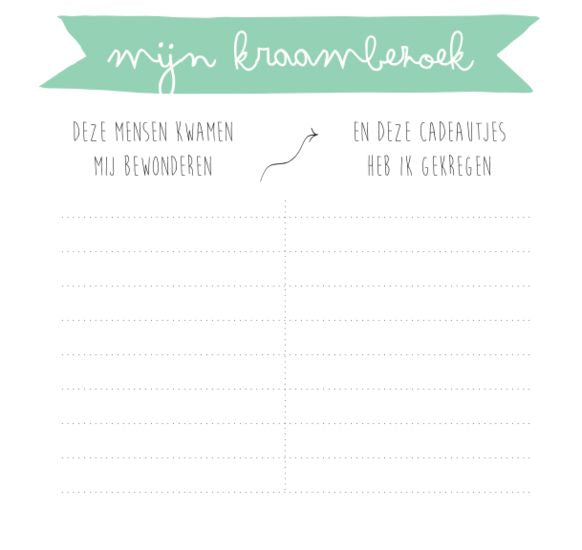 mijn kraambezoek
DEZE MENSEN KWAMEN
MIJ BEWONDEREN
EN DEZE CADEAUTJES
HEB IK GEKREGEN